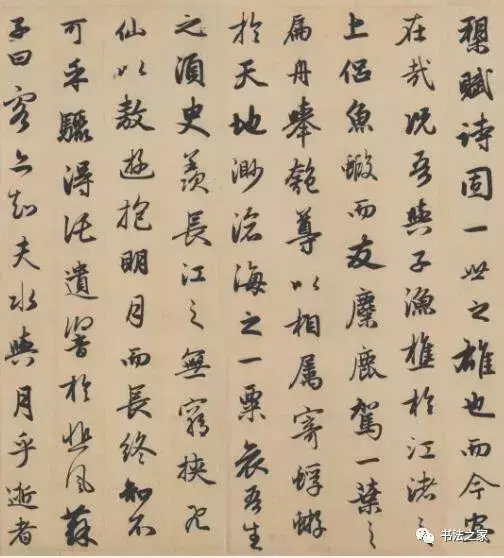 槊賦詩固一世之雄也而今安
在哉況吾與子漁樵於江渚之
上侣魚蝦而友麋鹿駕一葉之
扁舟舉匏尊以相属寄蜉蝣
於天地渺滄海之一粟哀吾生
之須臾羨長江之無窮挟飛
仙以敖遊抱明月而長終知不
可乎驟得託遺響於悲風蘇
子曰客亦知夫水與月乎逝者
书法之家